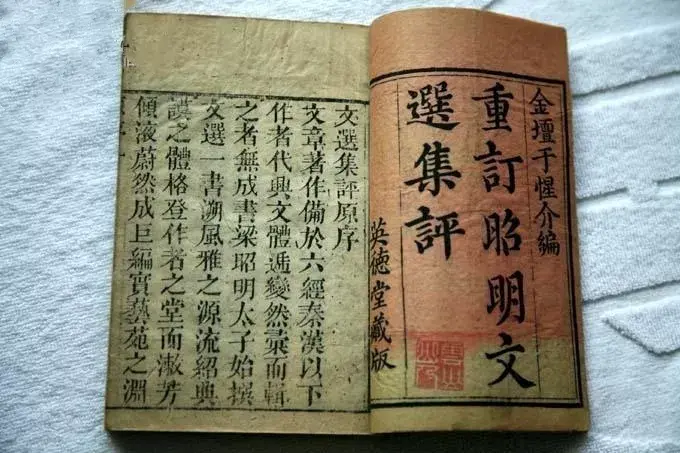 金壇于惺介編
重訂昭明文
選集評
英德堂藏版
文選集評原序
文章著作備於六經秦漢以下
作者代興文體遞變然彙而輯
之者無成書梁昭明太子始撰
文選一書溯風雅之源流紹典
謨之體格登作者之堂而漱芳
傾液蔚然成巨編實藝苑之淵